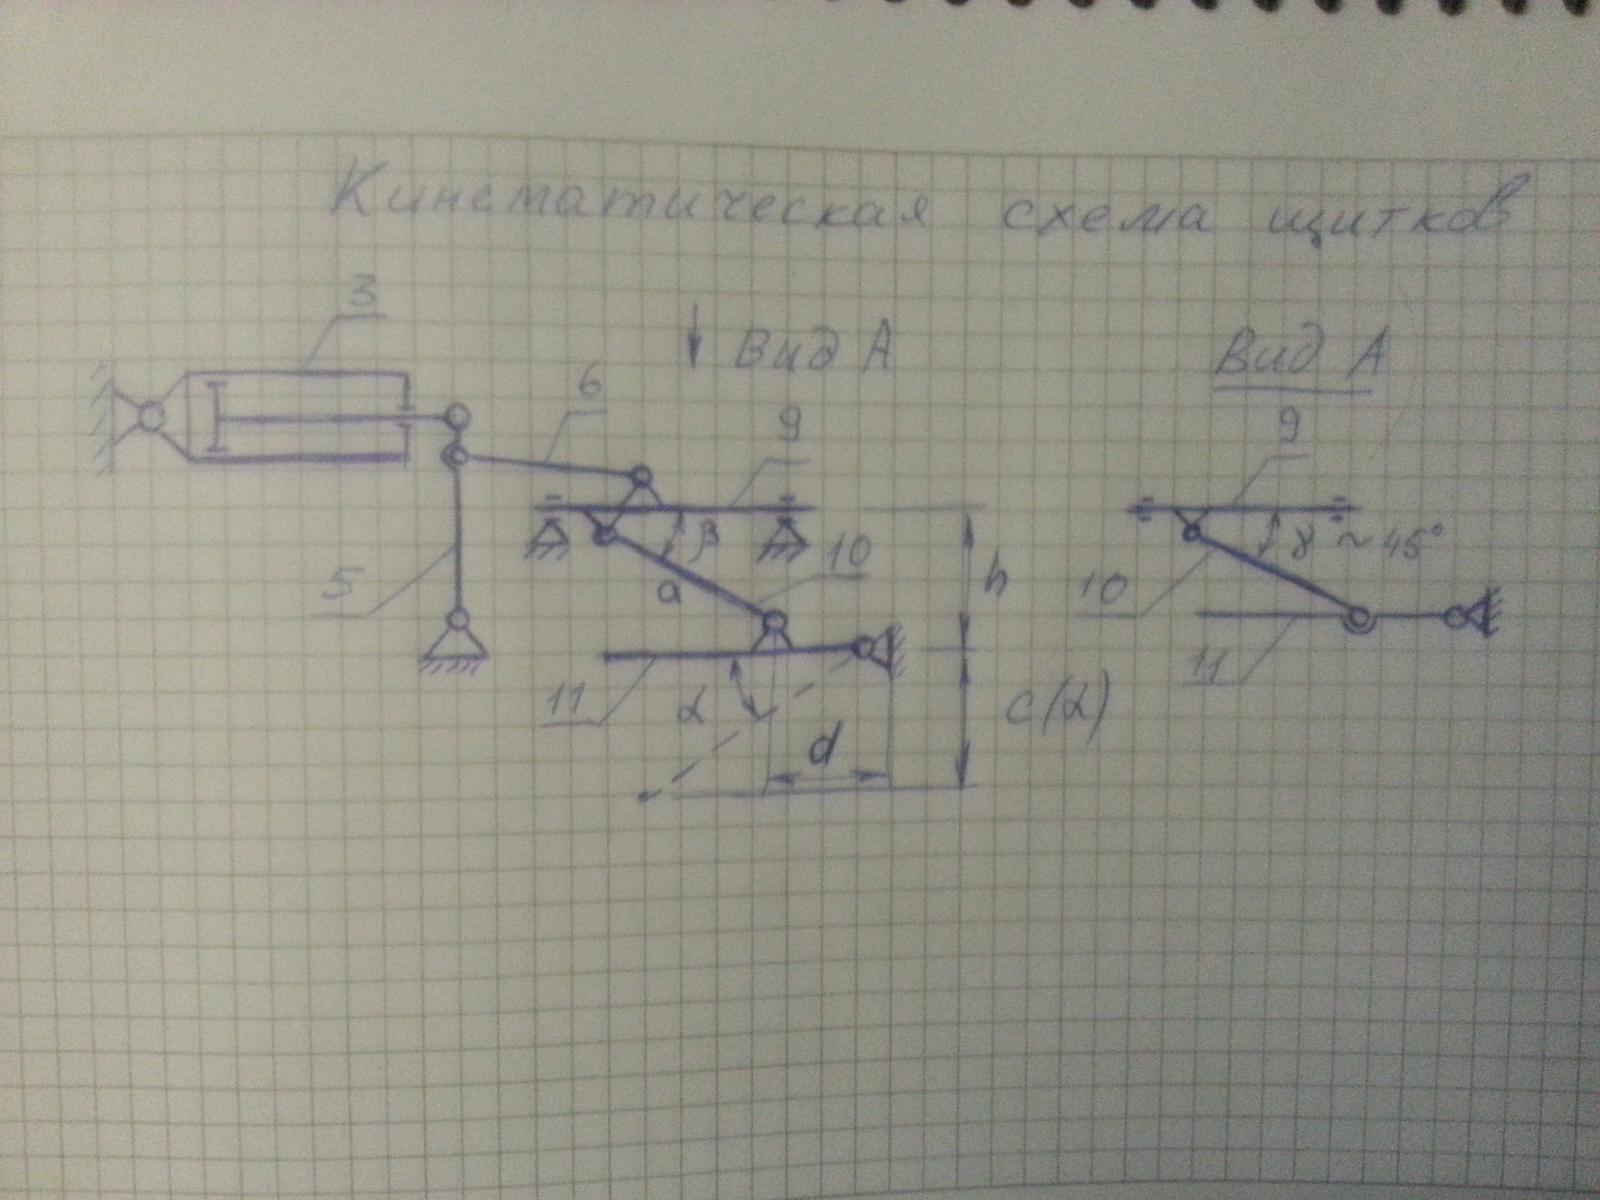 Кинематическая схема щитков
3
Вид А
Вид А
6
9
9
β
10
γ ~ 45°
5
a
h
10
11
11
α
c(α)
d